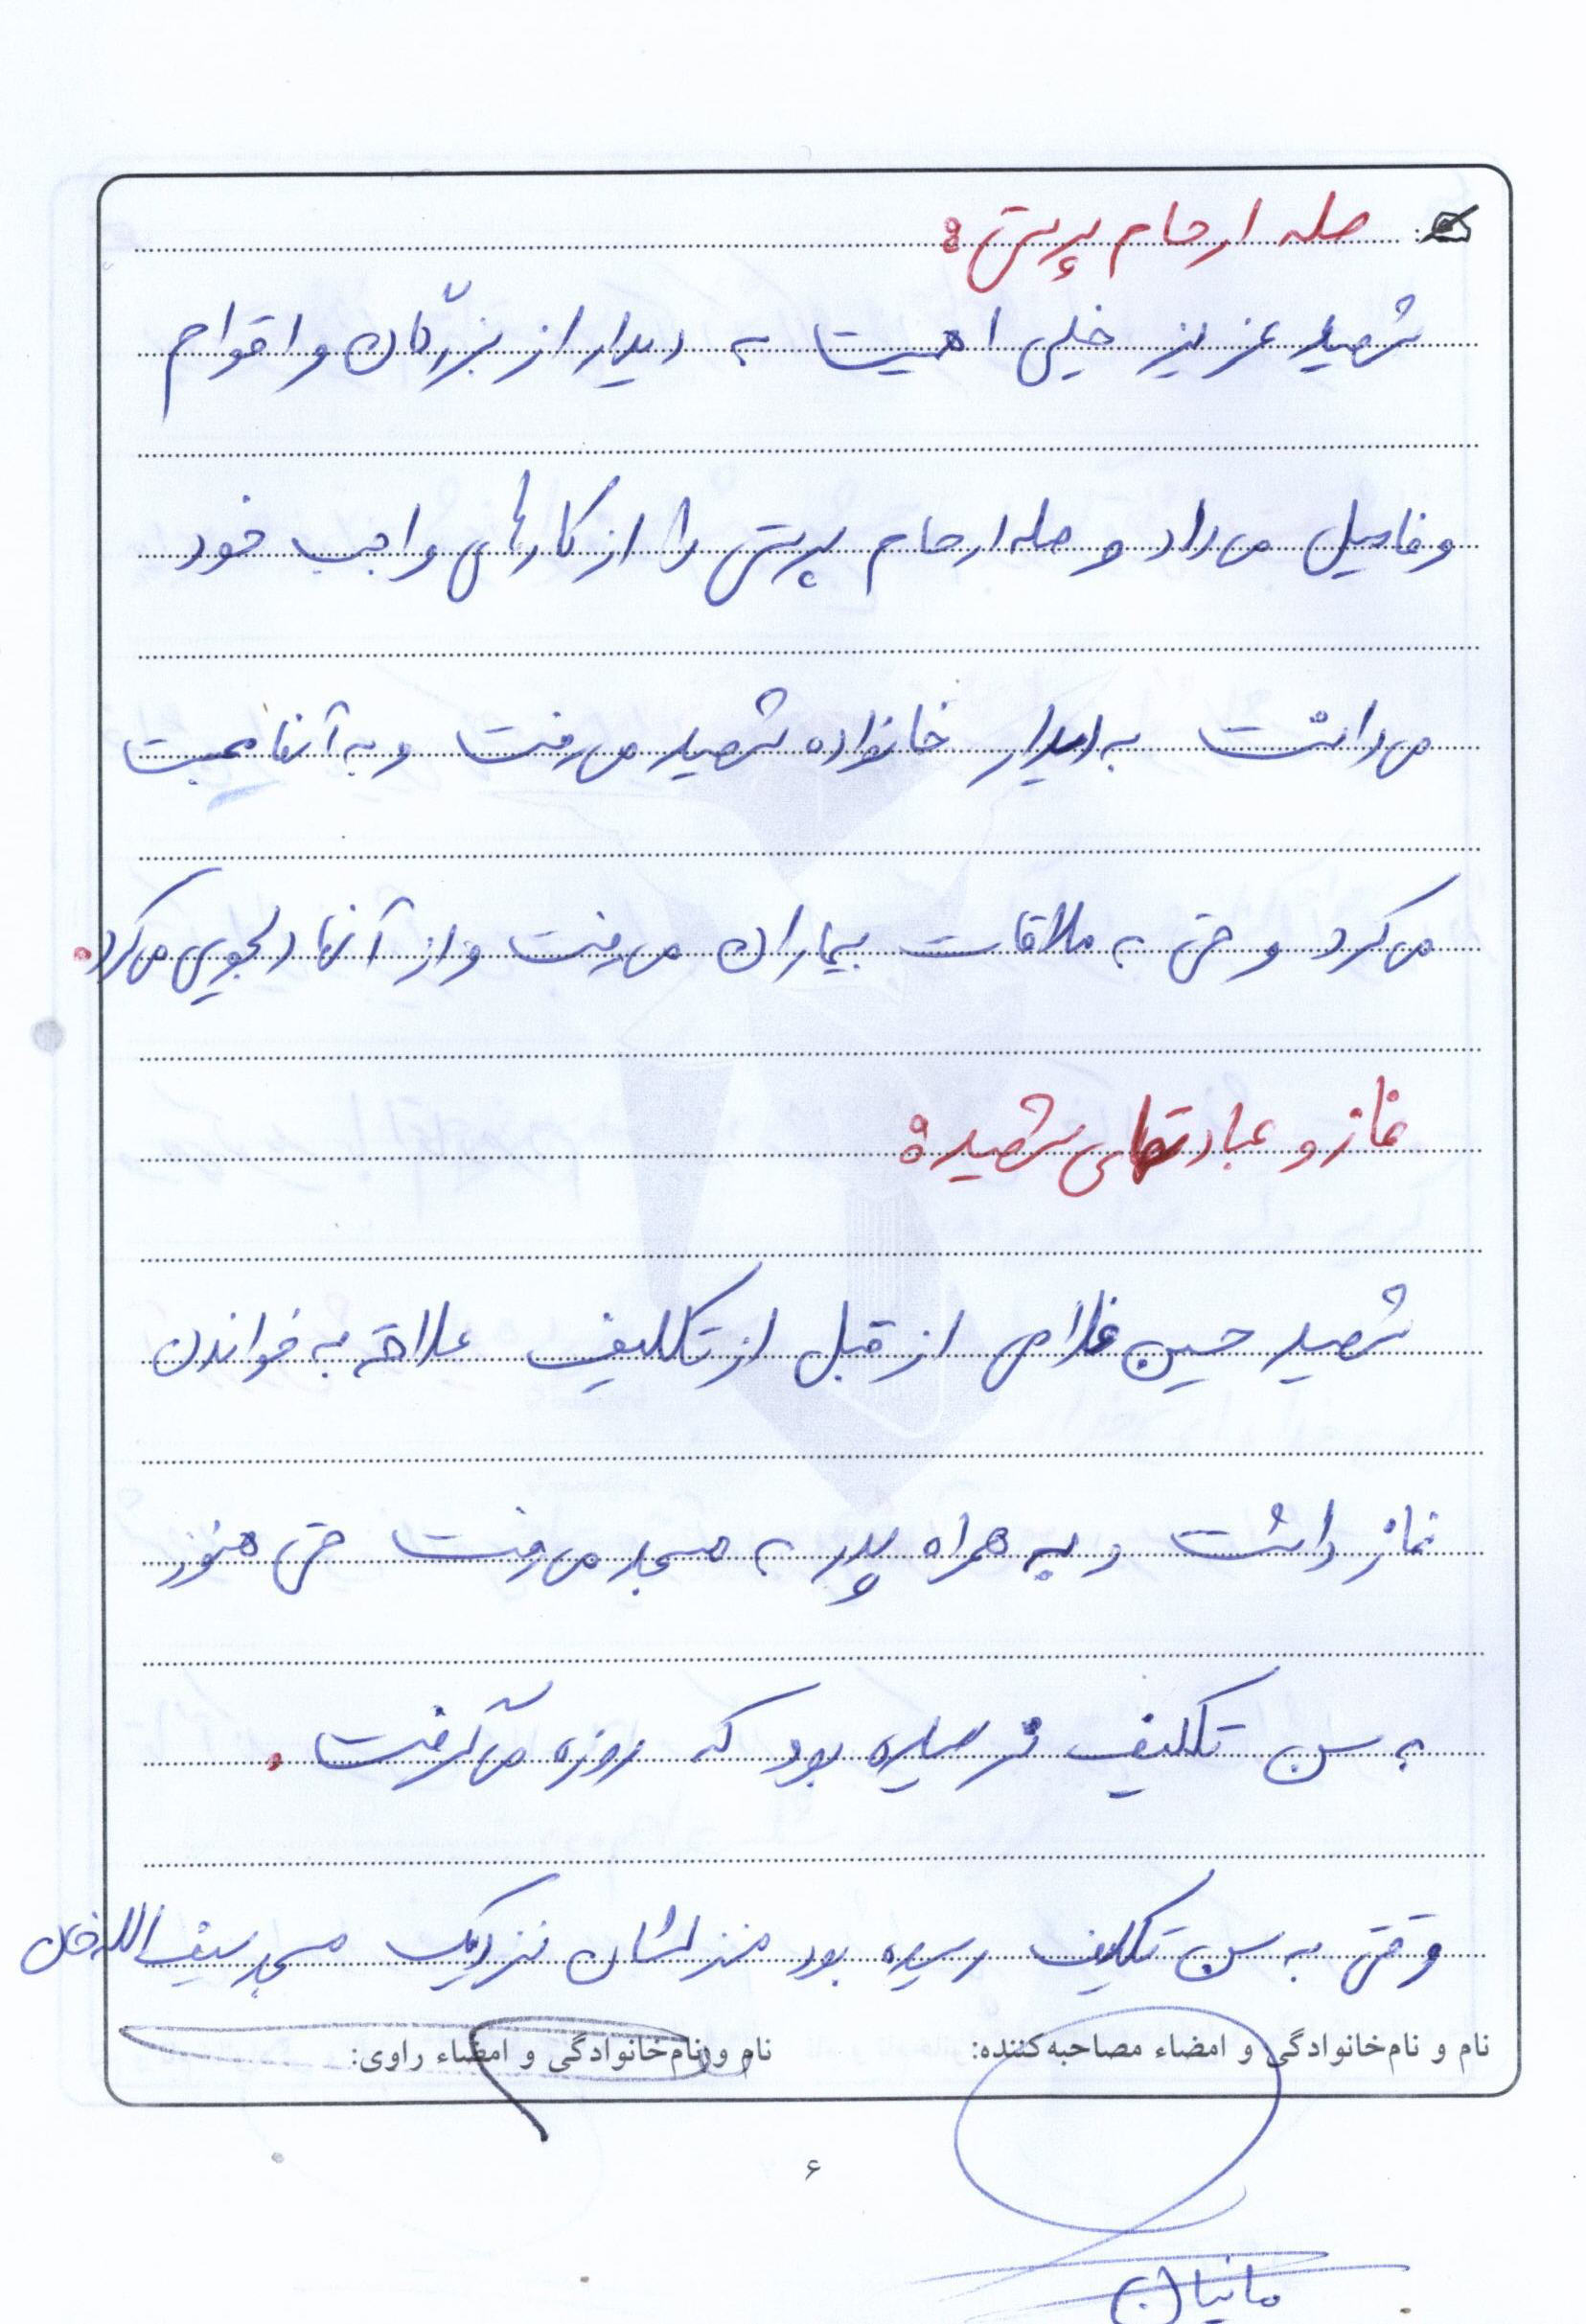 صله ارحام پرستی:
شهید عزیز خیلی اهمیت به دیدار از بزرگان و اقوام
و فامیل می‌داد و صله ارحام پرستی را از کارهای واجب خود
می‌دانست به دیدار خانواده شهید می‌رفت و به آنها محبت
می‌کرد و حتی به ملاقات بیماران می‌رفت و از آنها دلجویی می‌کرد.
نماز و عبادتهای شهید:
شهید حسین غلامی از قبل از تکلیف علاقه به خواندن
نماز داشت و به همراه پدر به مسجد می‌رفت حتی هنوز
به سن تکلیف نرسیده بود که روزه می‌گرفت.
وقتی به سن تکلیف رسیده بود منزلشان نزدیک مسجد سیف‌الله‌خان
نام و نام‌خانوادگی و امضاء مصاحبه‌کننده:
نام و نام‌خانوادگی و امضاء راوی:
۶